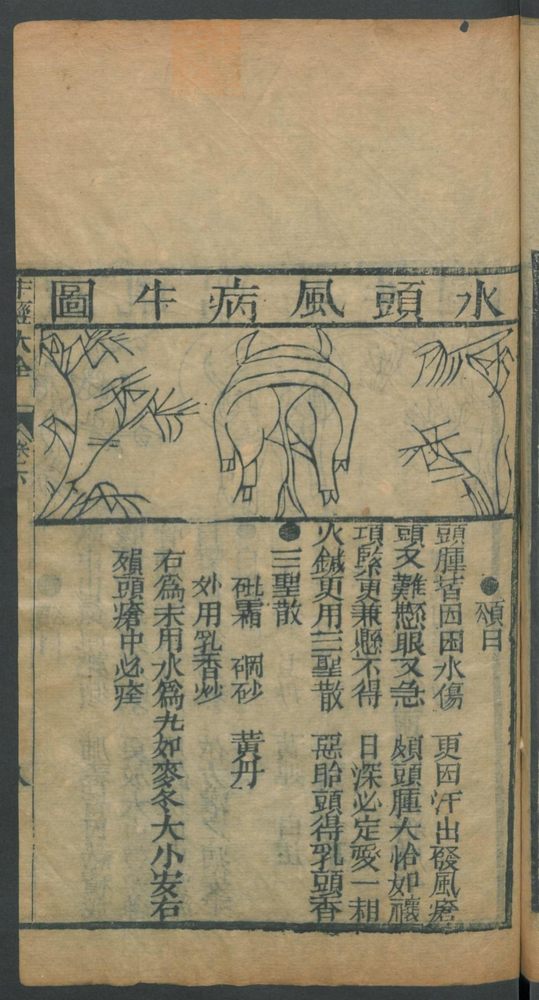 水頭風病牛圖
●頌曰
頭腫皆因困水傷 更因汗出發風瘡
頭又難懸眼又急 頰頭腫大恰如禳
項緊更兼懸不得 日深必定愛一相
火鍼更用三聖散 惡胎頭得乳頭香
●三聖散
砒霜 硇砂 黃丹
外用乳香炒
右為末用水為丸如麥冬大小安右
頰頭瘡中必痊
牛經大全 卷六
八